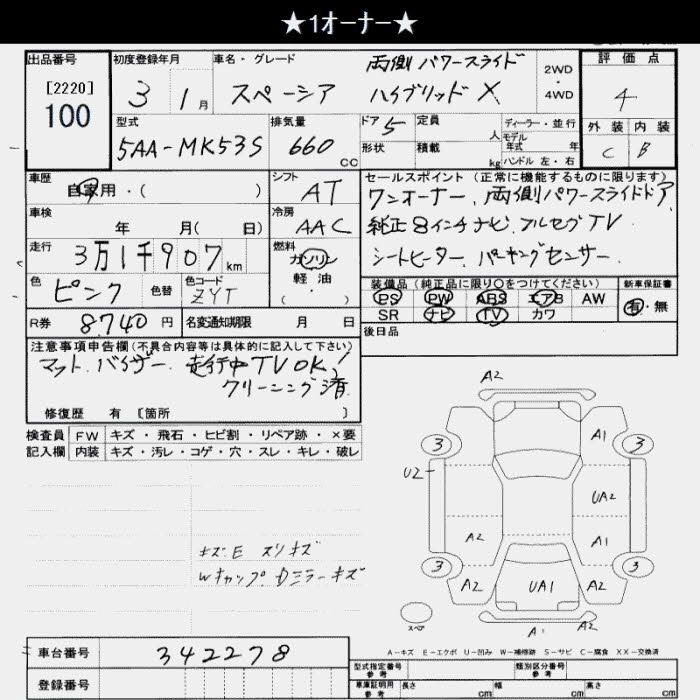 ★1オーナー★
出品番号
[2220]
100
初度登録年月
3 1 月
車名・グレード
スペーシア
両側パワースライド
ハイブリッド X
2WD
4WD
評価点
4
外装 内装
C B
型式
5AA-MK53S
排気量
660 cc
ドア 5
形状
定員 人
積載 kg
ディーラー・並行
モデル年式 年
ハンドル 左・右
車歴
自家用・( )
シフト
AT
セールスポイント(正常に機能するものに限ります)
ワンオーナー、両側パワースライドドア
純正8インチナビ、フルセグTV
シートヒーター、パーキングセンサー
車検
年 月( 日)
冷房
AAC
走行
3万1千907km
燃料
ガソリン
軽油
( ・ )
色
ピンク
色替
色コード
ZYT
装備品(純正品に限り○をつけてください)
PS PW ABS エアB AW
SR ナビ TV カワ
新車保証書
有・無
R券 8740 円
名変通知期限 月 日
後日品
注意事項申告欄(不具合内容等は具体的に記入して下さい)
マット、バイザー、走行中TVOK!
クリーニング済
修復歴 有 [箇所 ]
検査員 FW キズ・飛石・ヒビ割・リペア跡・×要
記入欄 内装 キズ・汚レ・コゲ・穴・スレ・キレ・破レ
A2
3 A1 3
U2
UA2
A2 A1
3 3
A2 UA1 A2
スペア
A1 A2
キズE スリキズ
Wキャップ Dミラーキズ
A-キズ E-エクボ U-凹み W-補修跡 S-サビ C-腐食 XX-交換済
車台番号 342278
登録番号
型式指定番号 参考
類別区分番号 参考
車庫証明用 参考 長さ cm 幅 cm 高さ cm